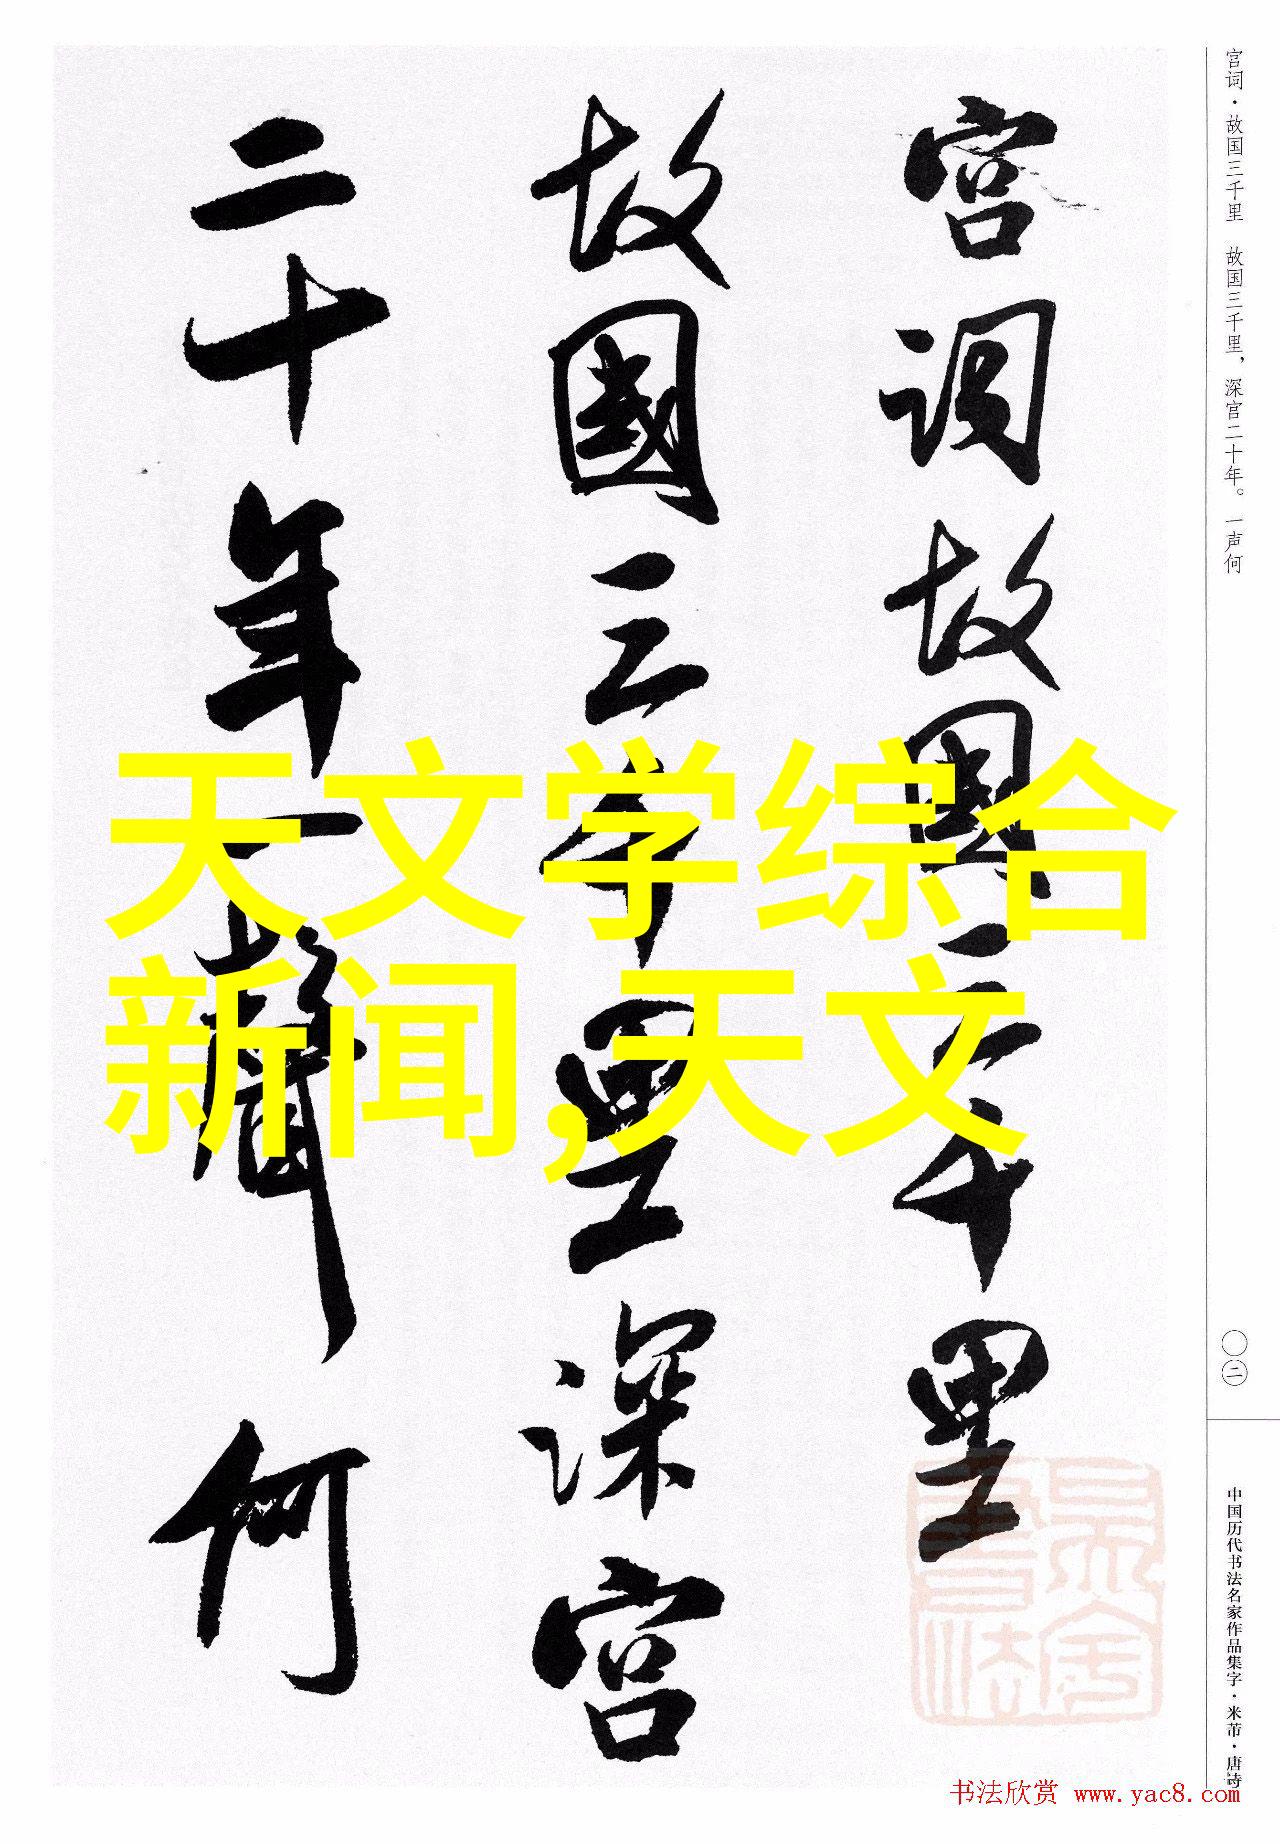 宫词·故国三千里　故国三千里，深宫二十年。一声何
宫词故国三千里
故國三千里深宫
二十年一聲何
天文学综合
新闻,天文
〇二
中国历代书法名家作品集字·米芾·唐诗
书法欣赏 www.yac8.com